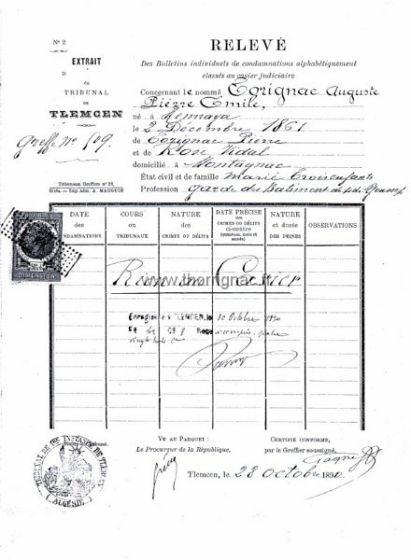 N° 2
EXTRAIT
du
TRIBUNAL
DE
TLEMCEN
Greffe N° 509.
RELEVÉ
Des Bulletins individuels de condamnations alphabétiquement
classés au casier judiciaire
Concernant le nommé Torignac Auguste
Pierre Emile,
né à Hennaya
le 2 Décembre 1861
de Torignac Pierre
et de Rose Vidal
domicilié à Montagnac
État civil et de famille Marié Trois enfants
Profession garde des Bâtiments
DATE
des
CONDAMNATIONS
COURS
ou
TRIBUNAUX
NATURE
des
CRIMES OU DÉLITS
DATE PRÉCISE
des
CRIMES OU DÉLITS
ci-contre
NATURE
et durée
DES PEINES
OBSERVATIONS
www.thorrignac.fr
Enregistré à TLEMCEN, le 30 Octobre
VU AU PARQUET :
Le Procureur de la République,
CERTIFIÉ CONFORME,
par le Greffier soussigné,
Tlemcen, le 28 octobre 1890.
TRIBUNAL DE 1RE INSTANCE DE TLEMCEN
(ALGÉRIE)